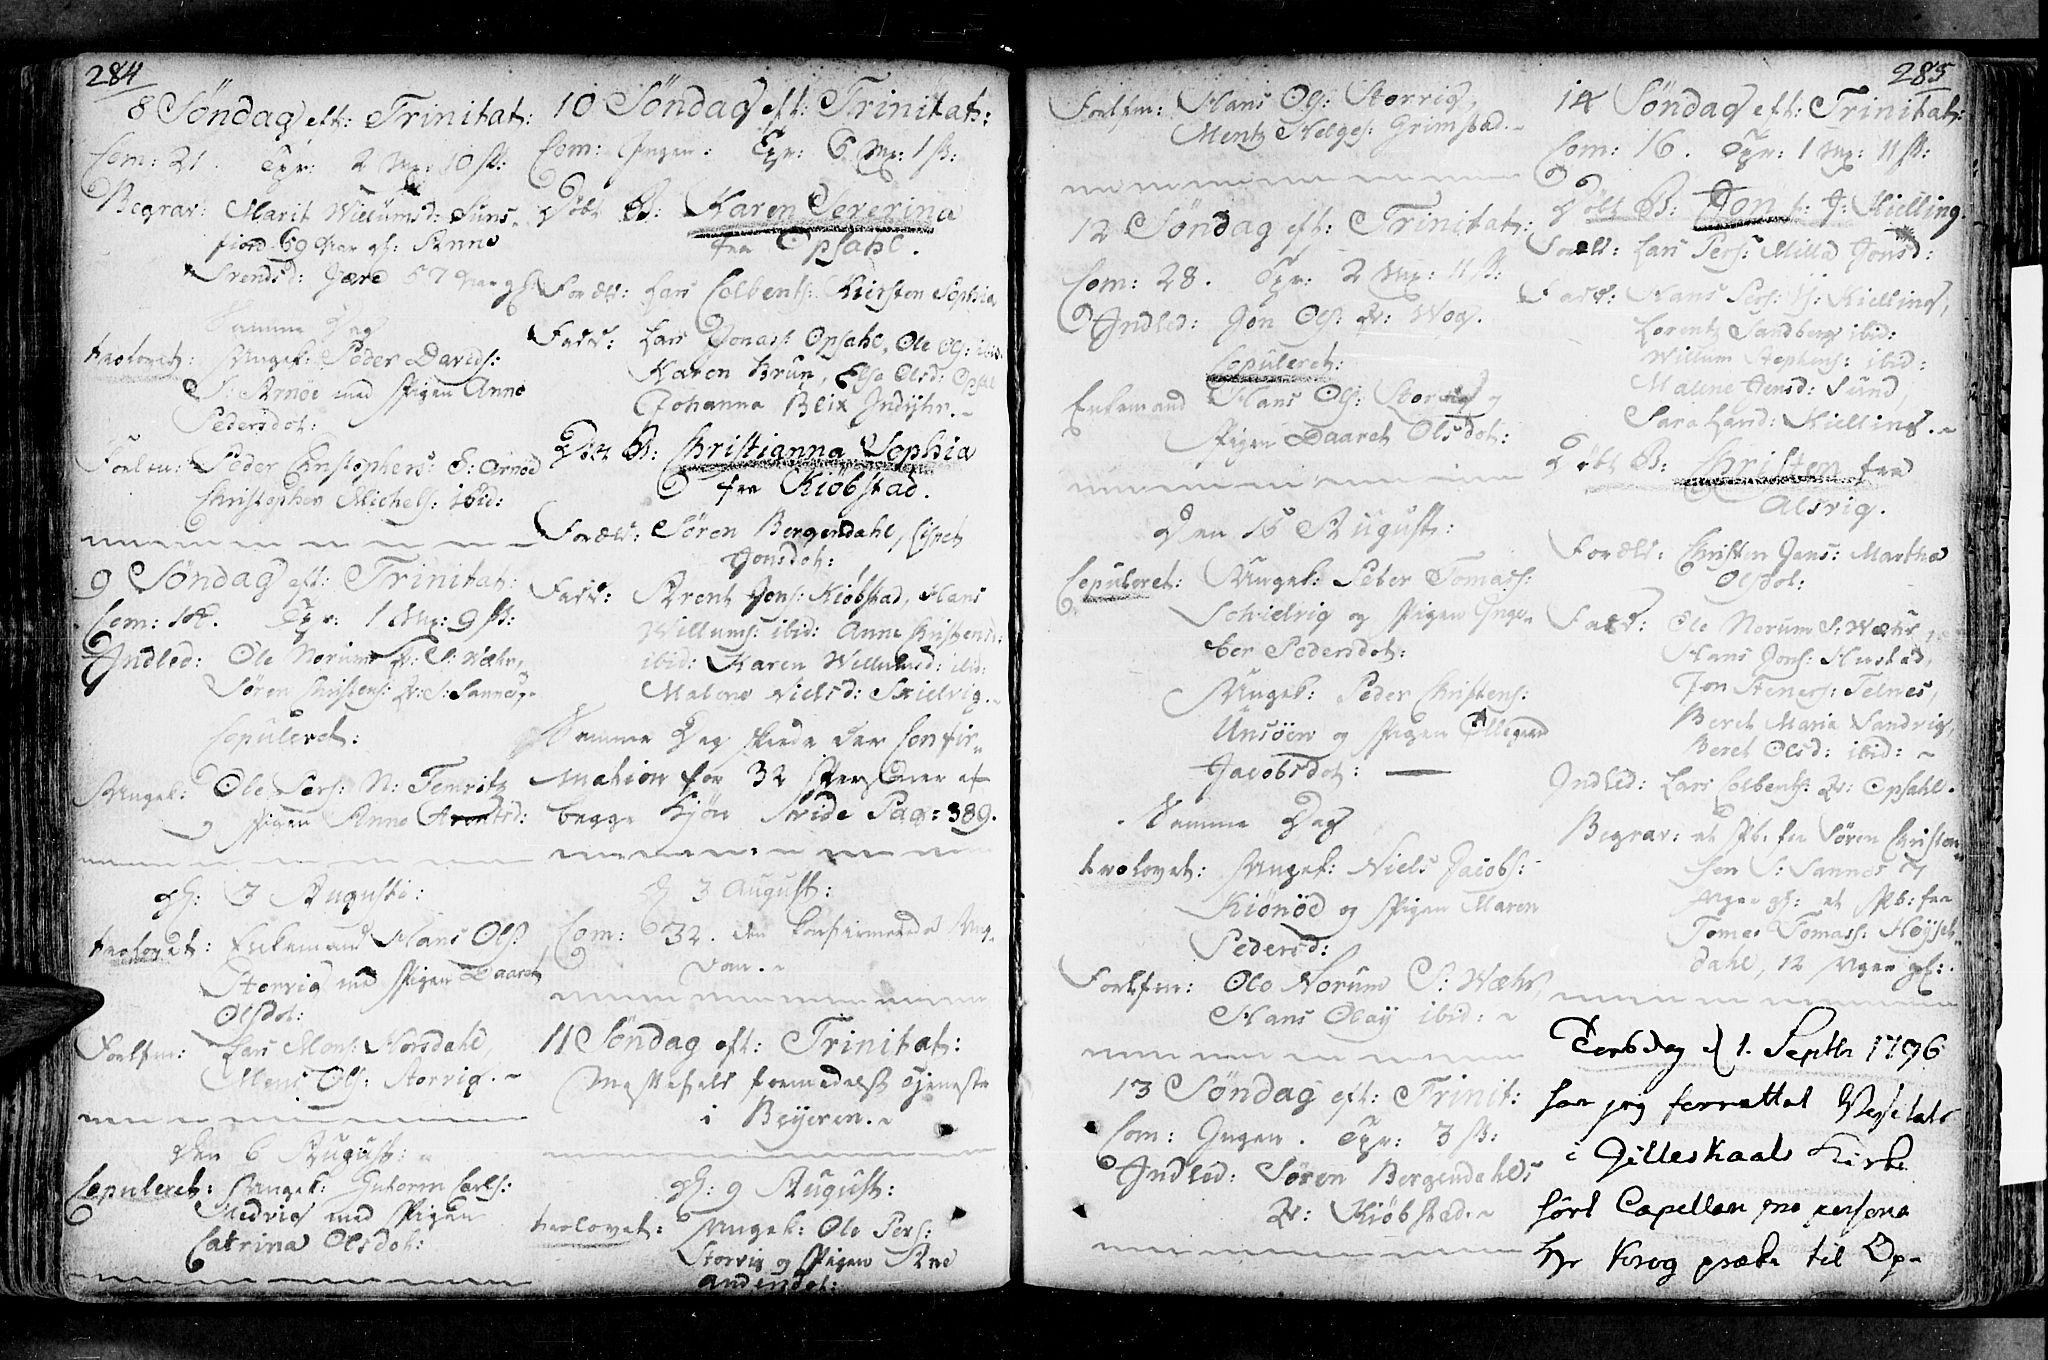 284
8 Søndag eft: Trinitat:
Com: 21. Tpr: 2 Mk: 10 ß:
Begrav: Marit Willumsd: Suns-
fiord 69 Aar gl: Anne
Srendsd: Jære 57 Aar gl:
Samme Dag
trolovet: Ungek: Peder Davids:
S: Arnøe med Pigen Anne
Pedersdot:
Forlfm: Peder Christophers: S: Arnøe
Christopher Michels: ibid:
9 Søndag eft: Trinitat:
Com: 14. Tpr: 1 Mk: 9 ß:
Indled: Ole Norums Qv: S: Wæhr,
Søren Christens: Qv: S: Sannes,
Copuleret:
Ungek: Ole Pers: N:
og Pigen Anne Arentsd:
d: 3 Augusti:
trolovet: Enkemand Hans Ols:
Storvig med Pigen Daaret
Olsdot:
Forlfm: Lars Mons: Horsdahl,
Mons Ols: Storvig.
den 6 August:
Copuleret: Ungek: Gutorm Carls:
Medvig med Pigen
Catrina Olsdot:
10 Søndag eft: Trinitat:
Com: Ingen. Tpr: 5 Mk: 1 ß:
Døbt B: Karen Severina
fra Opsahl.
Foræld: Lars Colbents: Kiersten Sophia
Fadd: Lars Jonas: Opsahl, Ole Ols: ibid:
Karen Brun, Else Olsd: Opsal
Johanna Blix Indyhr.
Døbt B: Christianna Sophia
fra Kiøbstad.
Foræld: Søren Bergendahl, Lisbet
Jonsdot:
Fadd: Arent Jons: Kiøbstad, Hans
Willums: ibid: Anne Christensd:
ibid: Karen Willumsd: ibid:
Malene Nielsd: Skielvig.
Samme Dag skeede der Confir-
mation for 32 Personer af
begge Kjøn vide Pag: 389.
d 3 August:
Com: 32. den Confirmerede Ung-
dom.
11 Søndag eft: Trinitat:
Messefald formedelst Tjeneste
i Beyeren.
d: 9 August:
trolovet: Ungek: Ole Pers:
Storvig og Pigen Ane
Andersdot:
285
Forlfm: Hans Ols: Storvig,
Mentz Helges: Grimstad.
12 Søndag eft: Trinitat:
Com: 28. Tpr: 2 Mk: 11 ß:
Indled: Jon Ols: Qv: Wog.
Copuleret:
Enkemand Hans Ols: Storvig og
Pigen Daaret Olsdot:
Den 16 August:
Copuleret: Ungek: Peter Tomass:
Schielvig og Pigen Inge-
bor Pedersdot:
Ungek: Peder Christens:
Unsöen og Pigen Ellegerd
Jacobsdot:
Samme Dag
trolovet: Ungek: Niels Jacobs:
Kiønøe og Pigen Maren
Pedersd:
Forlfm: Ole Norum S: Wæhr,
Hans Olay ibid:
13 Søndag eft: Trinit:
Com: Ingen. Tpr: 3 ß:
Indled: Søren Bergendahls
Qv: Kiøbstad.
14 Søndag eft: Trinitat:
Com: 16. Tpr: 1 Mk: 11 ß:
Døbt B: Jon f: I: Kielling.
Foræld: Lars Pers: Milla Jonsd:
Fadd: Hans Pers: Y: Kielling,
Lorentz Sandberg ibid:
Willum Stephens: ibid:
Malene Jensd: Sund,
Sara Land: Kielling.
Døbt B: Christen fra
Alsvig.
Foræld: Christen Jens: Martha
Olsdot:
Fadd: Ole Norum S: Wæhr,
Hans Jons: Hustad,
Jon Steners: Telnes,
Beret Maria Sandvig,
Beret Olsd: ibid:
Indled: Lars Colbents: Qv: Opsahl.
Begrav: et Pb: fra Søren Christen-
sen S: Sannes 7
Uger gl: et Pb: fra
Tomas Tomass: Høyset-
dahl, 12 Uger gl:
Torsdag d 1. Septbr 1796
har jeg forrettet Visitats
i Gilleskaals Kirke
hørt Capellan pro persona
Hr Krog præke til Op-